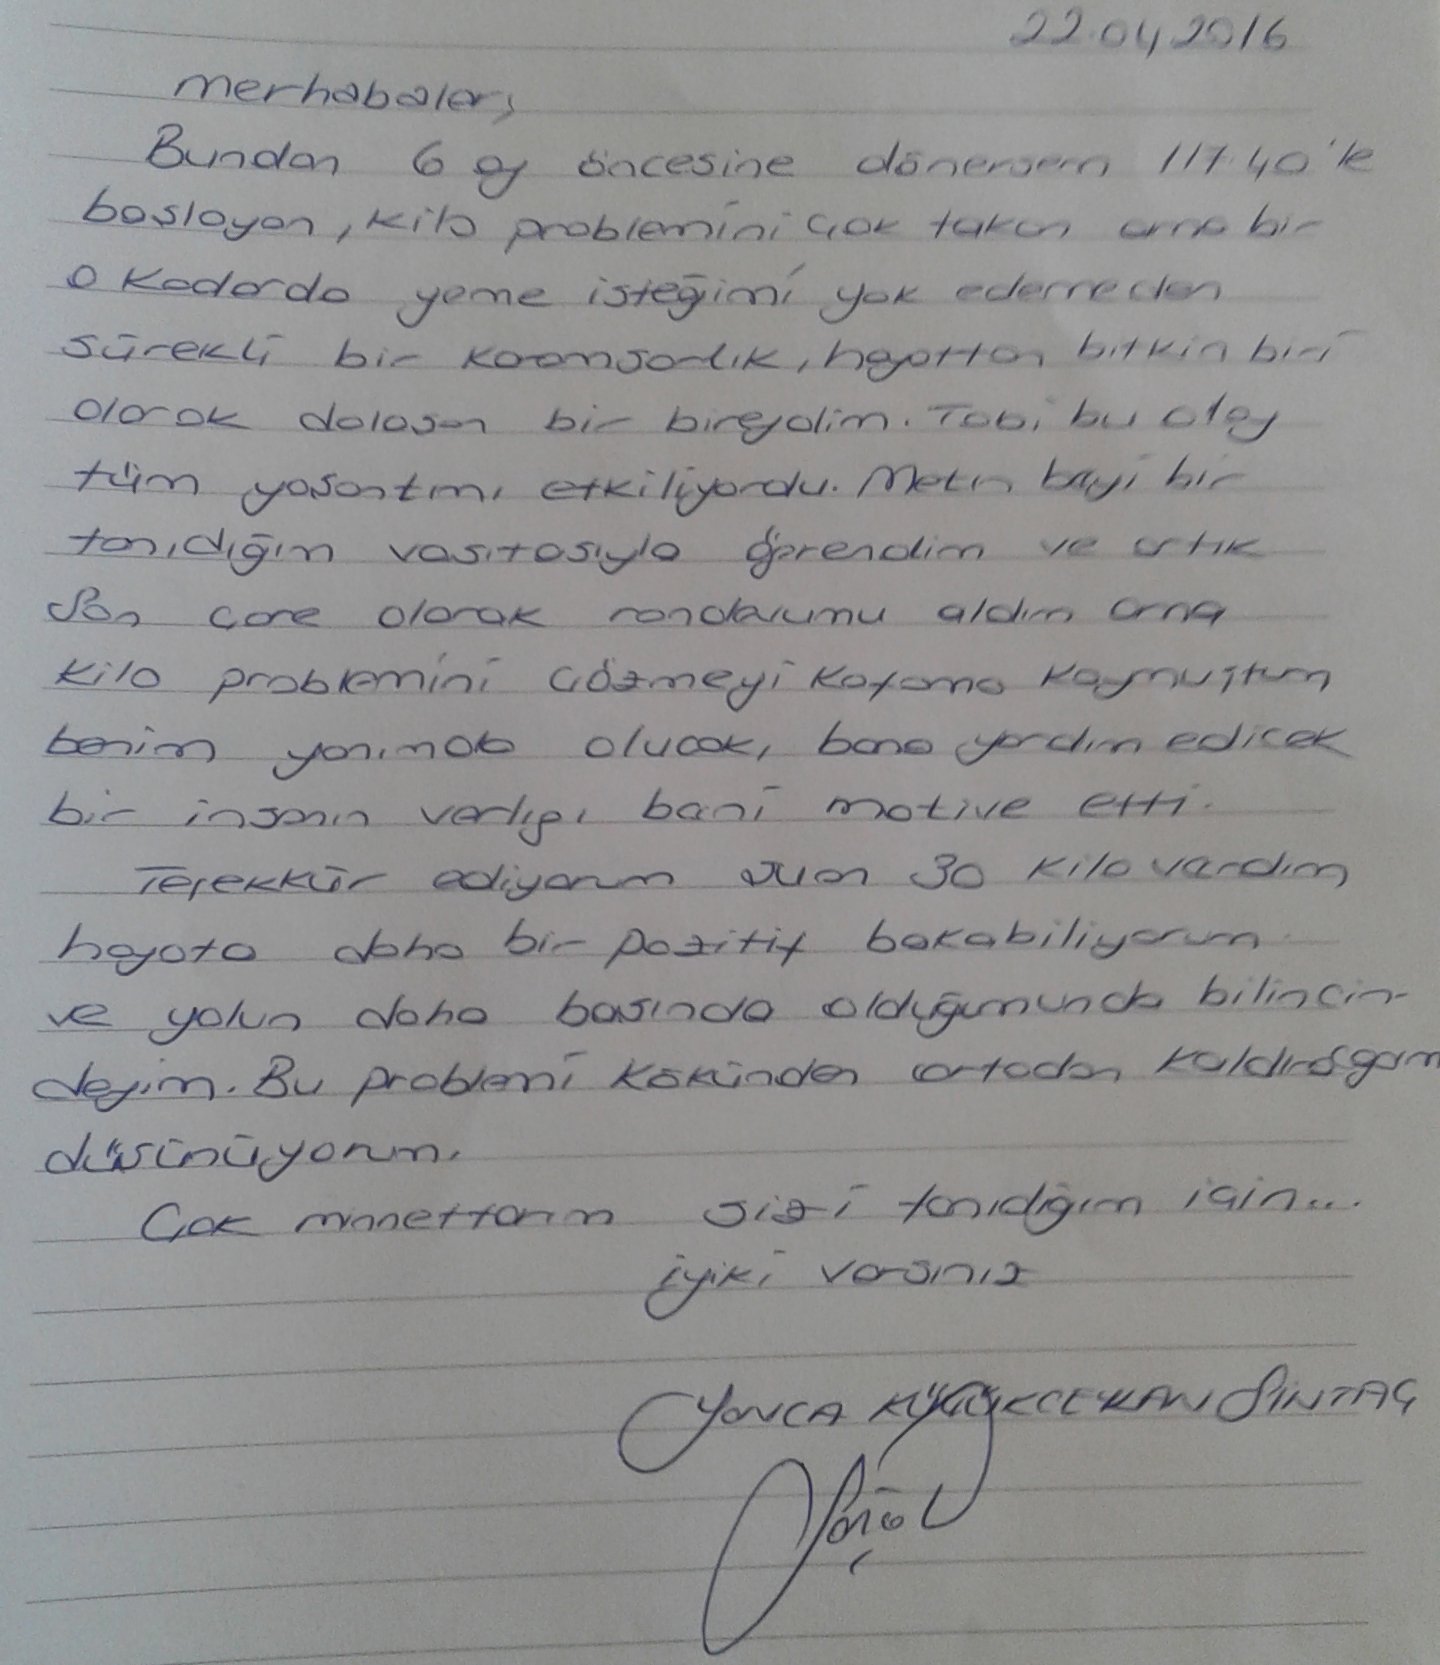 22.04.2016
Merhabalar,
Bundan 6 ay öncesine dönersem 117.40'le
başlayan, kilo problemini çok takan ama bir
o kadarda yeme isteğimi yok edemeden
sürekli bir karamsarlık, hayattan bitkin biri
olarak dolaşan bir bireydim. Tabi bu olay
tüm yaşantımı etkiliyordu. Metin beyi bir
tanıdığım vasıtasıyla öğrendim ve artık
son çare olarak randevumu aldım ama
kilo problemini çözmeyi kafama koymuştum
benim yanımda olucak, bana yardım edicek
bir insanın varlığı beni motive etti.
Teşekkür ediyorum 30 kilo verdim
hayata daha bir pozitif bakabiliyorum
ve yolun daha başında olduğumunda bilincin-
deyim. Bu problemi kökünden ortadan
düşünüyorum.
Çok minnettarım sizi tanıdığım için...
iyiki varsınız
YONCA KÜÇÜKCEYKAN SİNTAÇ